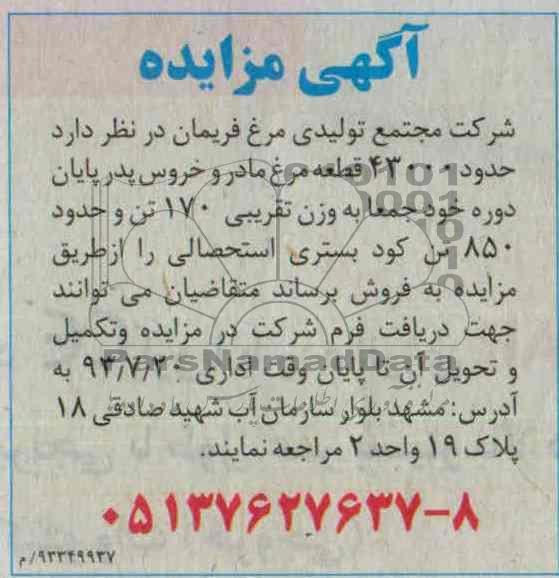 آگهی مزایده
شرکت مجتمع تولیدی مرغ فریمان در نظر دارد
حدود ۴۳۰۰۰ قطعه مرغ مادر و خروس پدر پایان
دوره خود جمعا به وزن تقریبی ۱۷۰ تن و حدود
۸۵۰ تن کود بستری استحصالی را ازطریق
مزایده به فروش برساند متقاضیان می توانند
جهت دریافت فرم شرکت در مزایده وتکمیل
ParsNamadData
و تحویل آن تا پایان وقت اداری ۹۳/۷/۲۰ به
آدرس: مشهد بلوار سازمان آب شهید صادقی ۱۸
پلاک ۱۹ واحد ۲ مراجعه نمایند.
۰۵۱۳۷۶۲۷۶۳۷-۸
۹۳۳۴۹۹۳۷/م